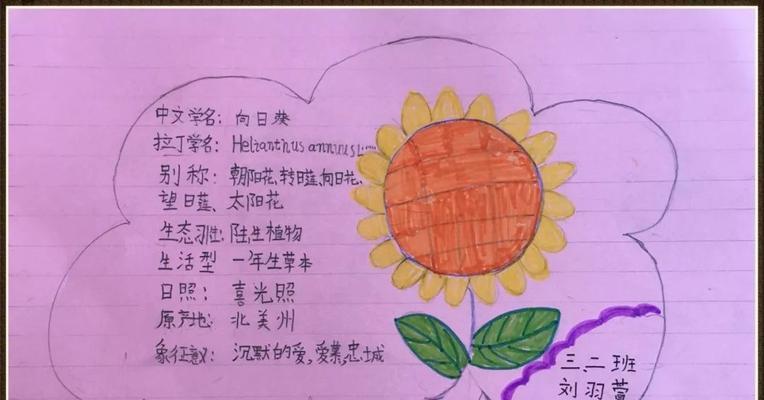 中文学名：向日葵
拉丁学名：Helianthus annuus L.
别称：朝阳花、转日莲、向日花、
望日莲、太阳花
生态习性：陆生植物
生活型 一年生草本
日照：喜光照
原产地：北美州
象征意义：沉默的爱，爱慕，忠城
三、二班
刘羽萱